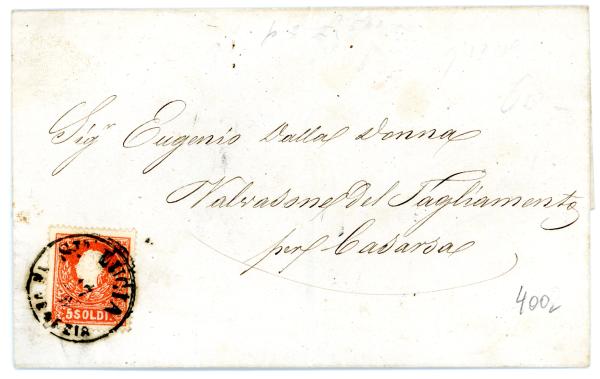 Sigr Eugenio Dalla Donna
Valvasone del Tagliamento
per Casarsa
STA LUCIA
VENEZIA
5 SOLDI
400